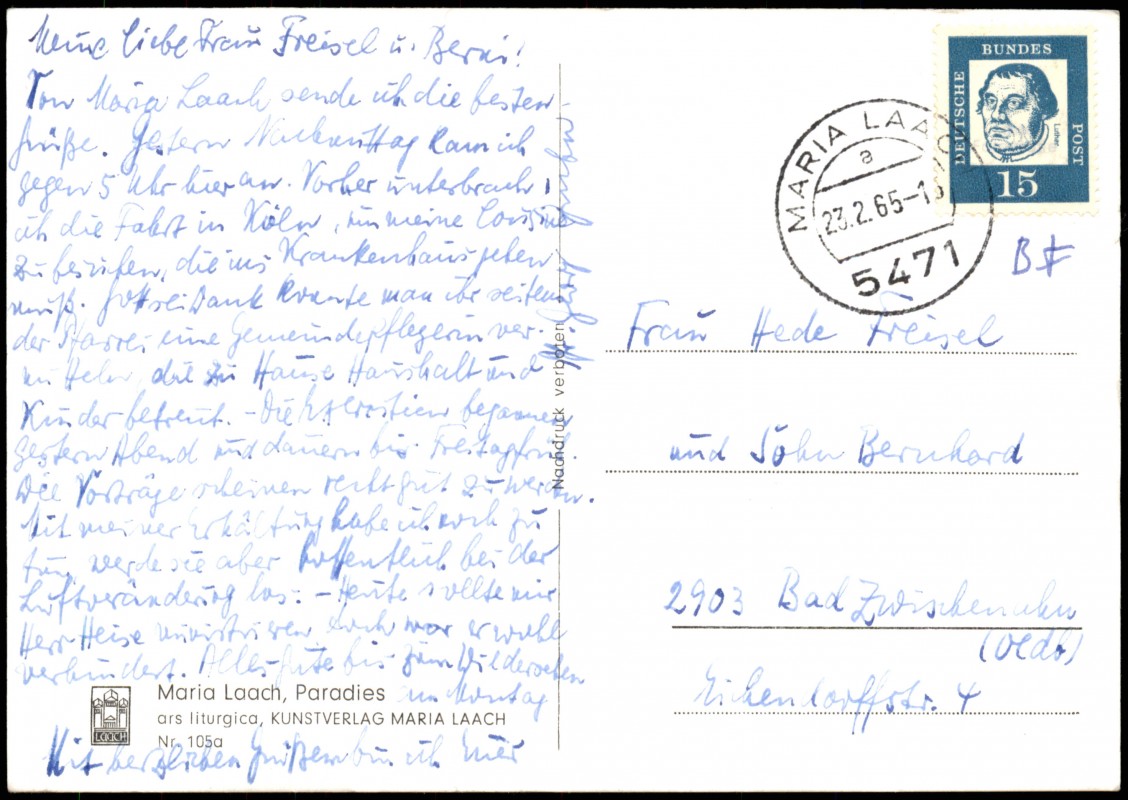 Meine liebe Frau Freisel u. Berni!
Von Maria Laach sende ich die besten
Grüße. Gestern Nachmittag kam ich
gegen 5 Uhr hier an. Vorher unterbrach
ich die Fahrt in Köln, um meine Cousine
zu besuchen, die ins Krankenhaus gehen
muß. Gott sei Dank konnte man ihr seitens
der Pfarrei eine Gemeindepflegerin ver-
mitteln, die zu Hause Haushalt und
Kinder betreut. – Die Exerzitien begannen
gestern Abend und dauern bis Freitagfrüh.
Die Vorträge scheinen recht gut zu werden.
Mit meiner Erkältung habe ich noch zu
tun, werde sie aber hoffentlich bei der
Luftveränderung los. – Heute sollte mir
Herr Heise ministrieren, doch war er wohl
verhindert. Alles Gute bis zum Wiedersehen
am Montag
Mit herzlichen Grüßen bin ich Euer
Maria Laach, Paradies
ars liturgica, KUNSTVERLAG MARIA LAACH
Nr. 105a
LAACH
Nachdruck verboten
DEUTSCHE BUNDES POST
Luther
15
MARIA LAACH
a
23.2.65-1
5471
Frau Hede Freisel
und Sohn Bernhard
2903 Bad Zwischenahn
(Oldb)
Eichendorffstr. 4